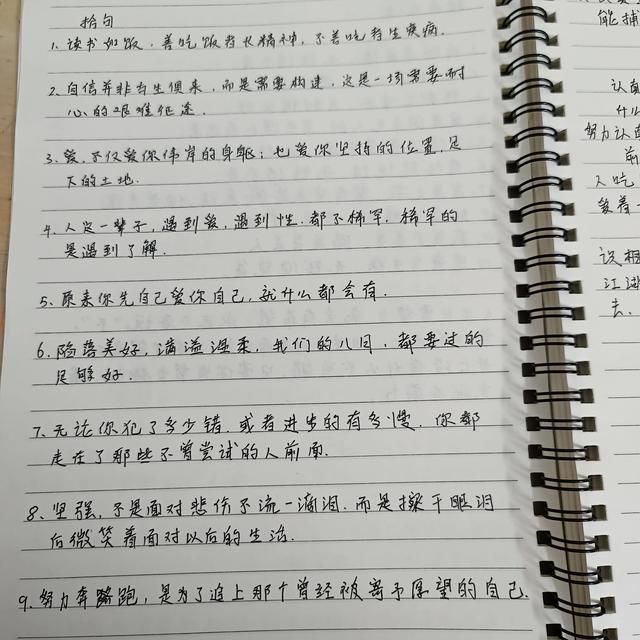 拾句
1. 读书如饭,善吃饭者长精神,不善吃者生疾病.
2. 自信并非与生俱来,而是需要构建,这是一场需要耐
心的艰难征途.
3. 爱,不仅爱你伟岸的身躯;也爱你坚持的位置,足
下的土地.
4. 人这一辈子,遇到爱,遇到性.都不稀罕,稀罕的
是遇到了解.
5. 原来你先自己爱你自己,就什么都会有.
6. 陷落美好,满溢温柔,我们的八月,都要过的
足够好.
7. 无论你犯了多少错.或者进步的有多慢.你都
走在了那些不曾尝试的人前面.
8. 坚强,不是面对悲伤不流一滴泪.而是擦干眼泪
后微笑着面对以后的生活.
9. 努力奔跑,是为了追上那个曾经被寄予愿望的自己.
能捕
认
什么
努力认
前
人吃
爱着一
江湖
去.